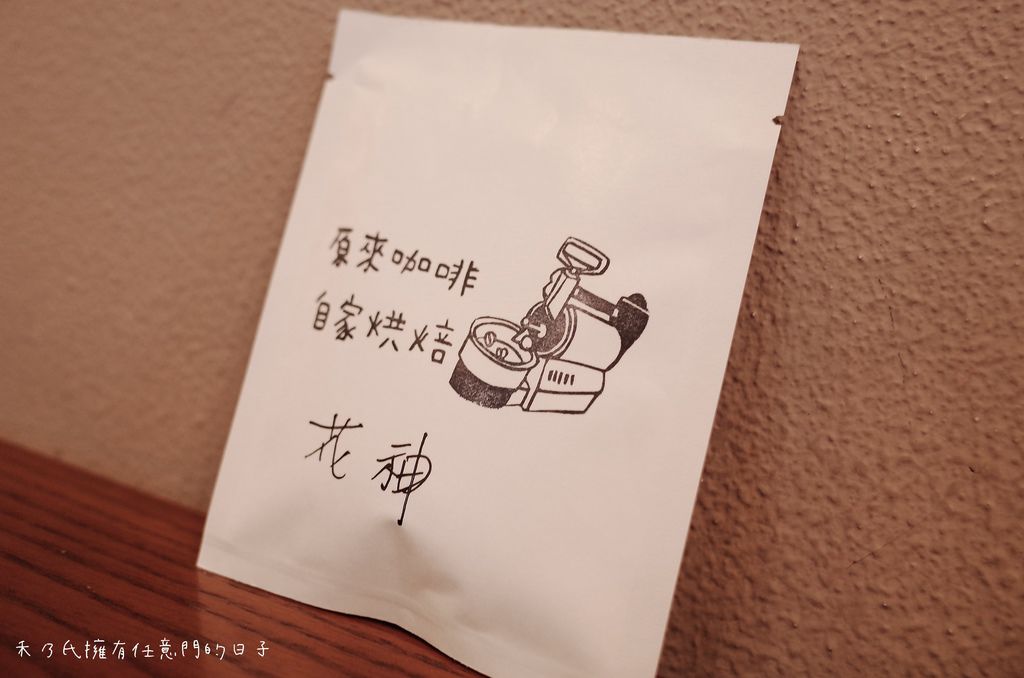 原來咖啡
自家烘焙
花神
禾乃氏擁有任意門的日子